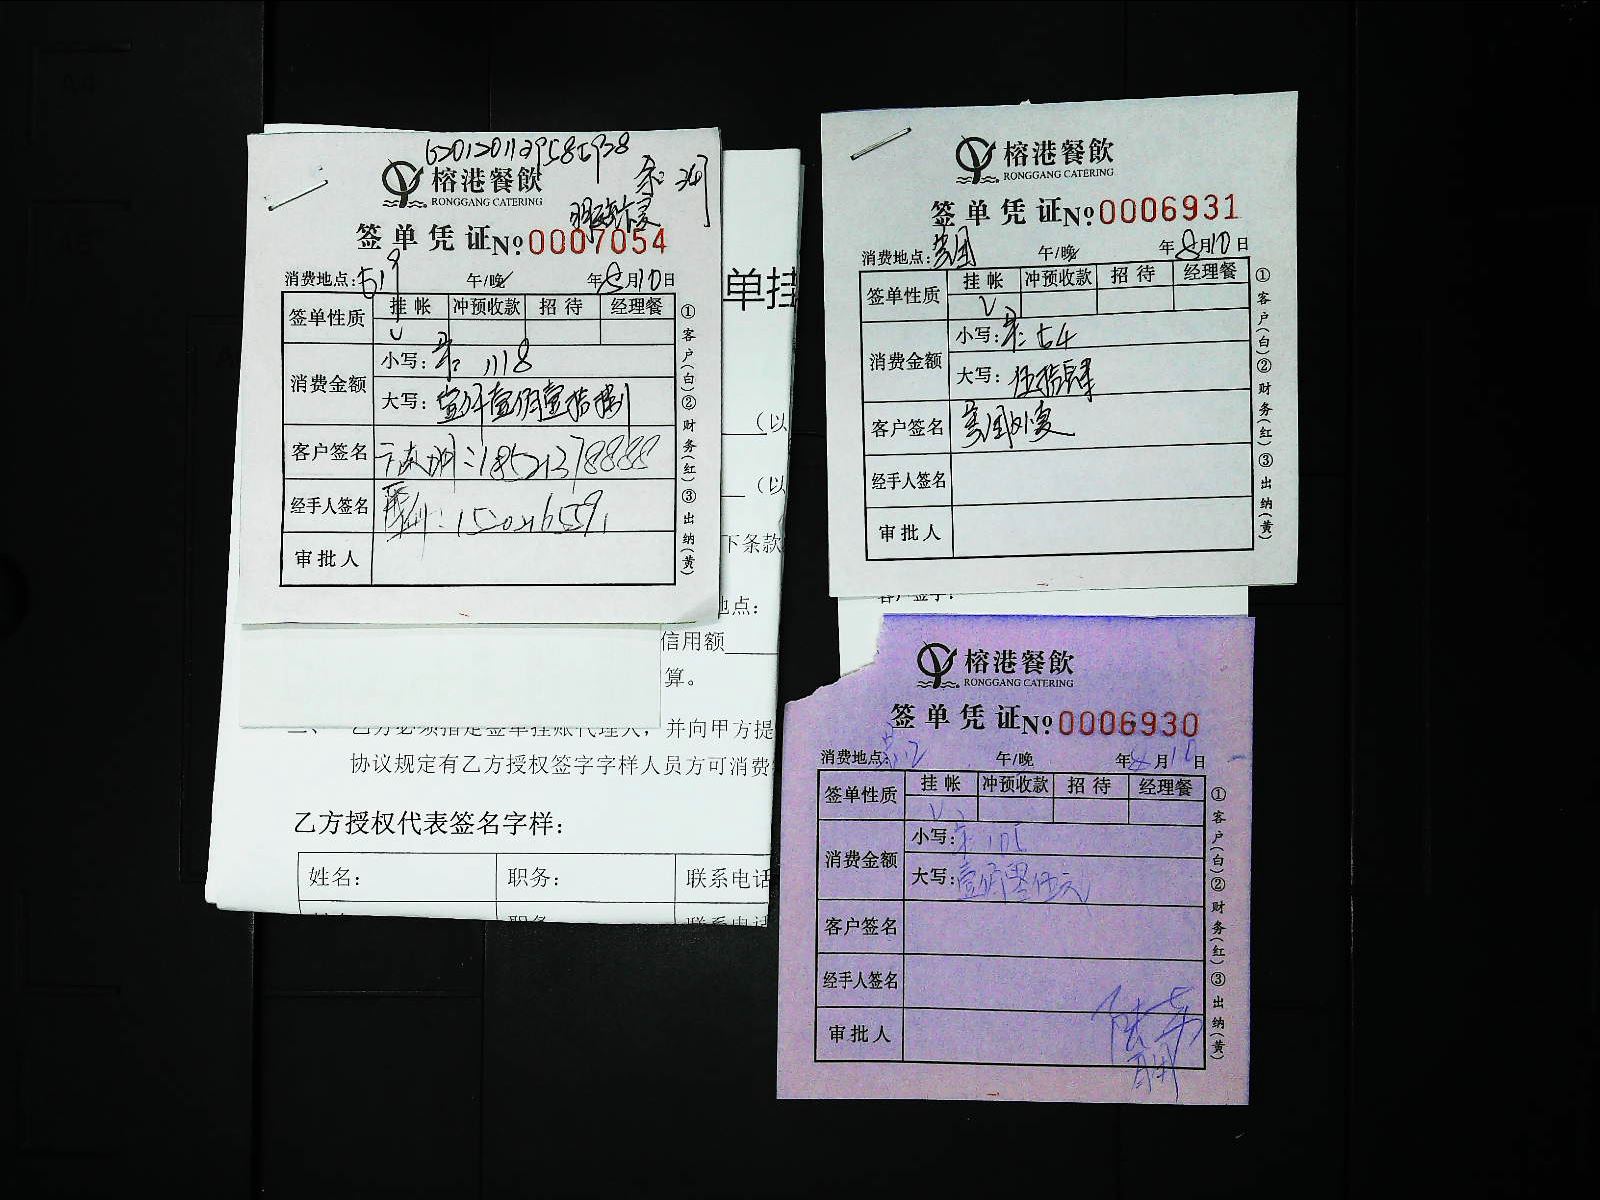 榕港餐飲
RONGGANG CATERING
签单凭证№0007054
消费地点:519 午/晚 年8月10日
签单性质 挂帐 冲预收款 招待 经理餐
消费金额
小写: 1118
大写:壹仟壹佰壹拾捌
客户签名 :18521378888
经手人签名
审批人
①客户(白)②财务(红)③出纳(黄)
单挂
(以
(以
下条款
地点:
信用额
算。
乙方必须指定签单挂账代理人,并向甲方提
协议规定有乙方授权签字字样人员方可消费
乙方授权代表签名字样:
姓名: 职务: 联系电话
榕港餐飲
RONGGANG CATERING
签单凭证№0006931
消费地点:美团 午/晚 年8月10日
签单性质 挂帐 冲预收款 招待 经理餐
消费金额
小写: 54
大写:伍拾肆
客户签名 美团外卖
经手人签名
审批人
①客户(白)②财务(红)③出纳(黄)
客户签字:
榕港餐飲
RONGGANG CATERING
签单凭证№0006930
消费地点: 午/晚 年8月10日
签单性质 挂帐 冲预收款 招待 经理餐
消费金额
小写: 105
大写:壹佰零伍元
客户签名
经手人签名
审批人
①客户(白)②财务(红)③出纳(黄)